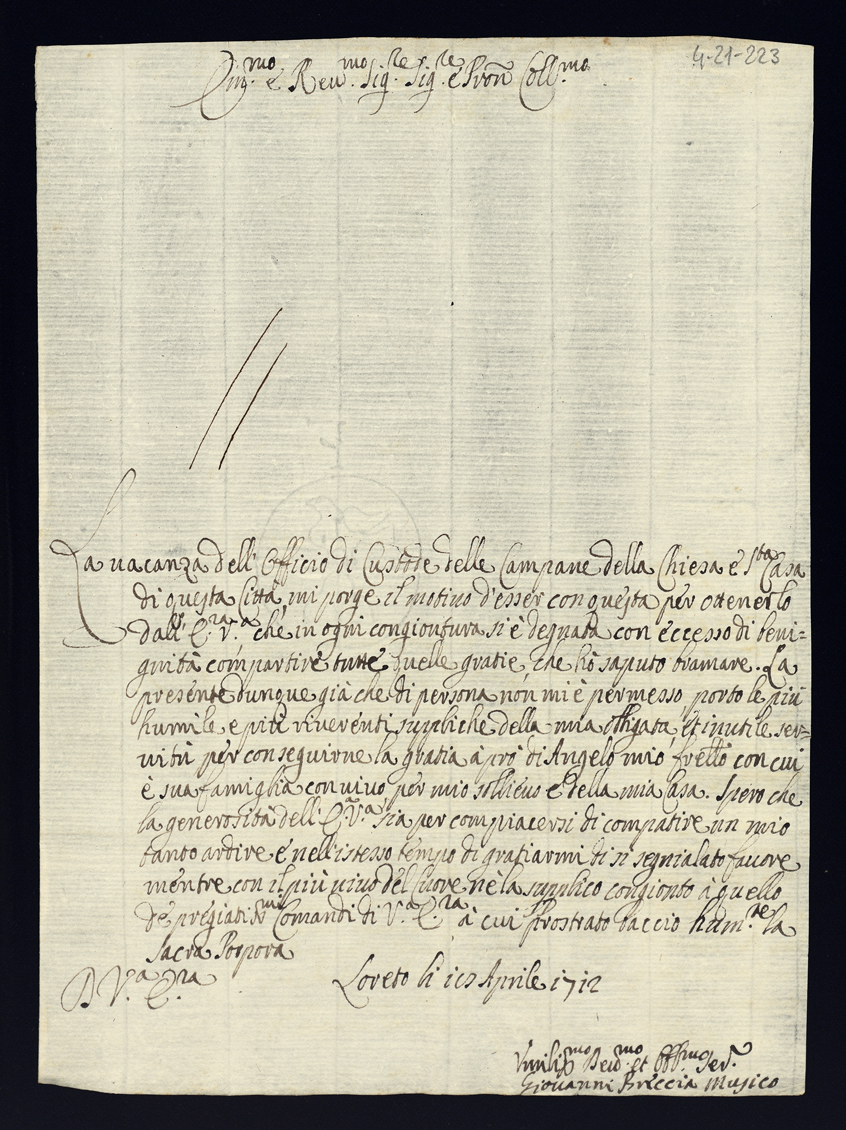 4-21-223
Em.mo e Reu.mo Sig.re Sig.re e Pron Coll.mo
La uacanza dell'Officio di Custode delle Campane della Chiesa e S.ta Casa
di questa Città, mi porge il motiuo d'esser con questa per ottenerlo
dall' E.ra V.a che in ogni congiontura si è degnata con eccesso di beni=
gnità compartire tutte quelle gratie, che hò saputo bramare. La
presente dunque già che di persona non mi è permesso porto le più
humile e più riuerenti suppliche della mia obligata, et inutile ser=
uitù per conseguirne la gratia à prò di Angelo mio frello con cui
è sua famiglia conuiuo per mio sollieuo e della mia Casa. Spero che
la generosità dell'E.a V.a sia per compiacersi di compatire un mio
tanto ardire e nell'istesso tempo di gratiarmi di sì segnialato fauore
mentre con il più uiuo del Cuore nè la supplico congionto à quello
de pregiatis.mi Comandi di V.a E.ra à cui prostrato baccio hum.re la
Sacra Porpora
D V.a E.ra
Loreto li Aprile 1712
Vmilis.mo Deu.mo et Obb.mo Ser.e
Giovanni Breccia Musico